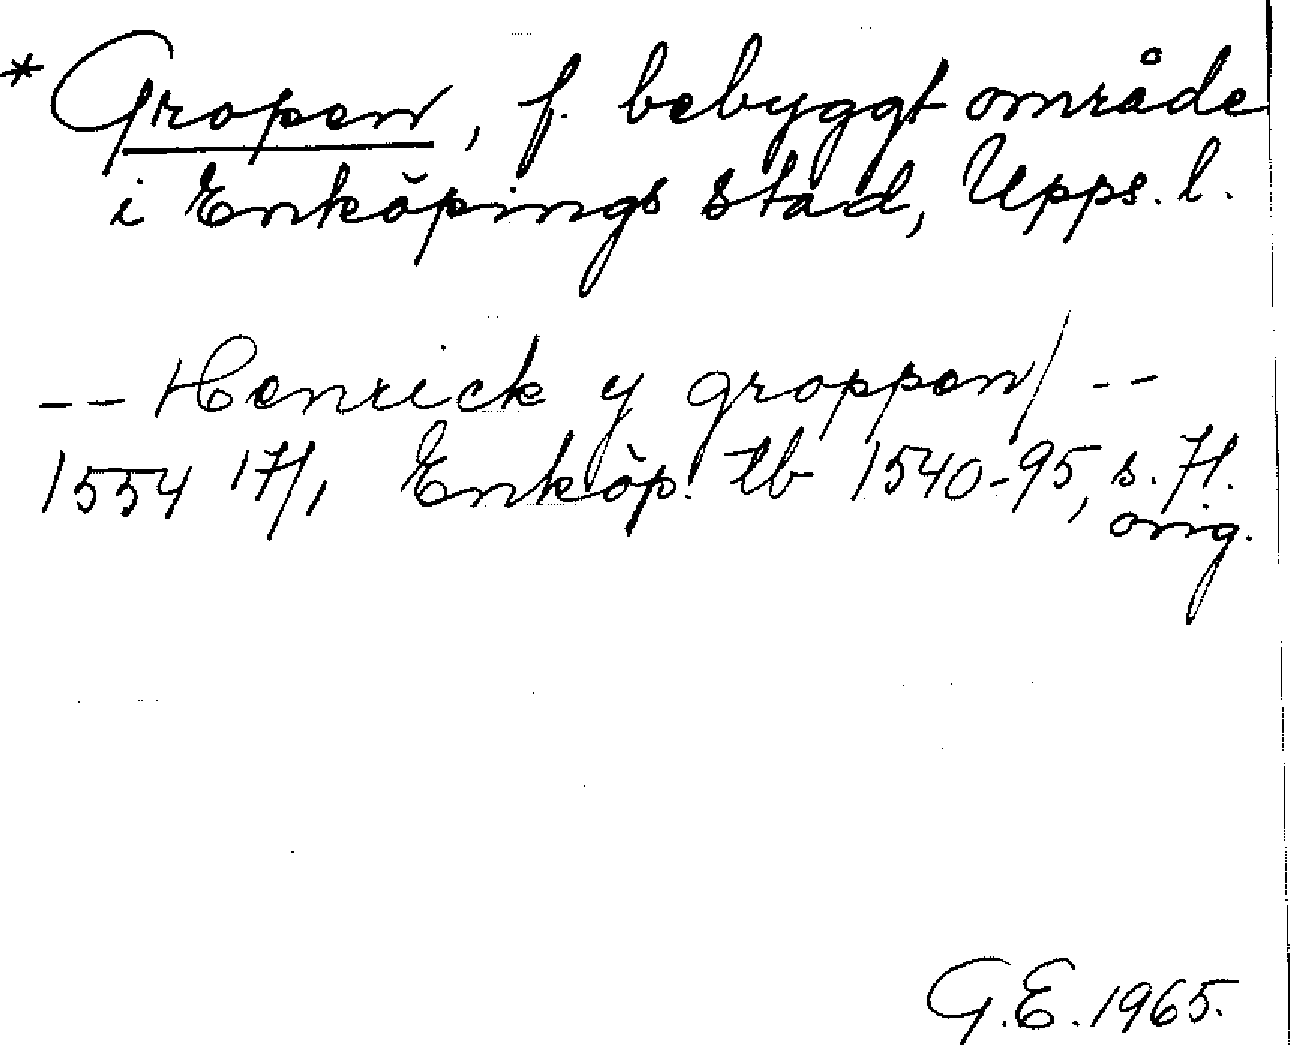 * Gropen, f. bebyggt område
i Enköpings stad, Upps. l.
-- Henrick y groppen/ --
1554 17/1, Enköp. tb 1540-95, s. 71.
orig.
G.E. 1965.